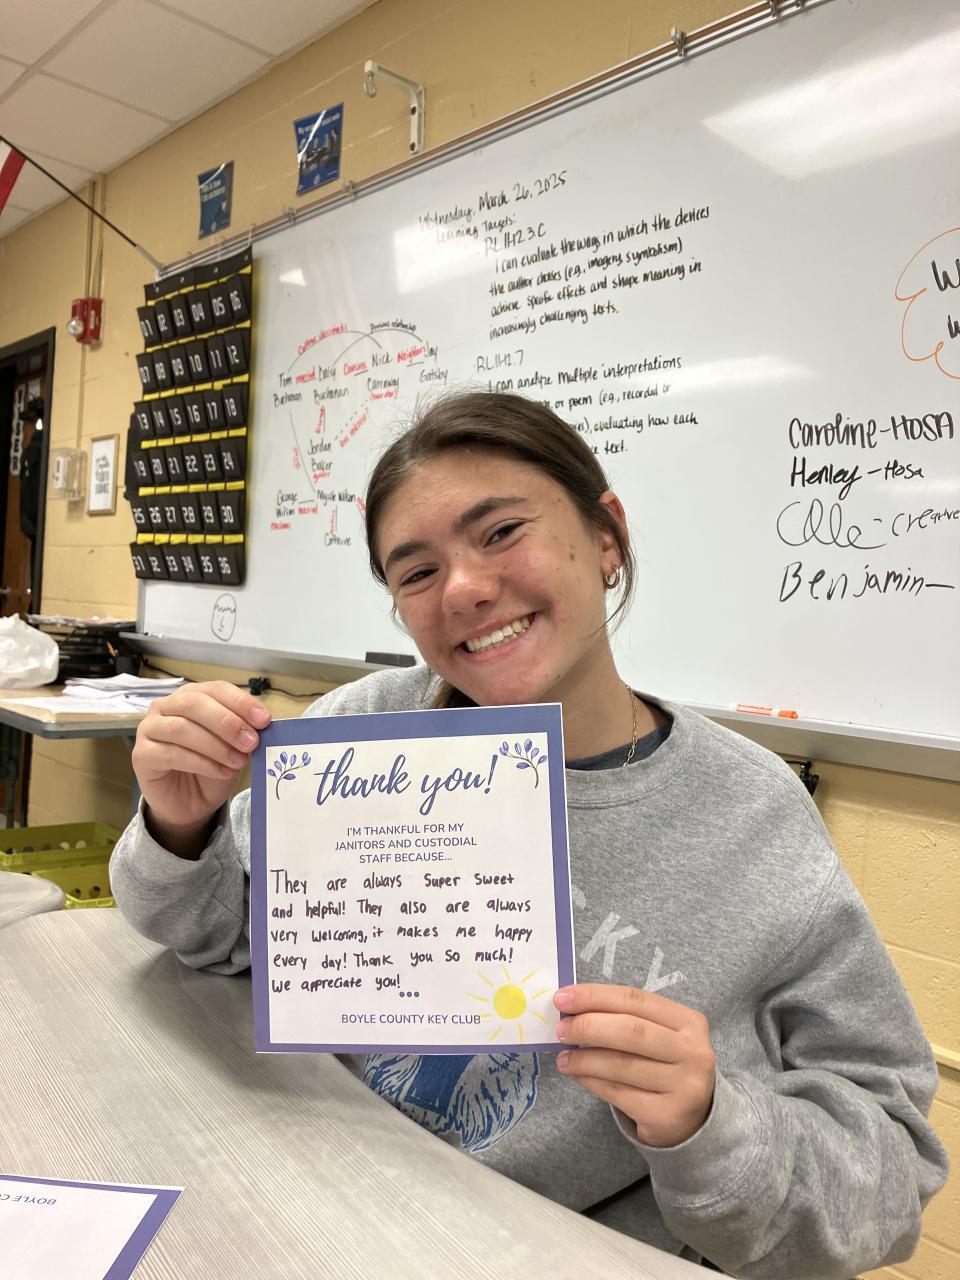 Wednesday, March 26, 2025
Learning Targets:
RL.11-12.3.C
I can evaluate the ways in which the devices
the author chooses (e.g., imagery, symbolism)
achieve specific effects and shape meaning in
increasingly challenging texts.
RL.11-12.7
I can analyze multiple interpretations
or poem (e.g., recorded or
evaluating how each
text.
College classmates
Previous relationship
Tom married Daisy Cousins Nick Neighbors Jay
Buchanan Buchanan Carraway Gatsby
Jordan
Baker
golfer
George Myrtle Wilson
Wilson married
Catherine
01 02 03 04 05 06
07 08 09 10 11 12
13 14 15 16 17 18
19 20 21 22 23 24
25 26 27 28 29 30
31 32 33 34 35 36
Caroline-HOSA
Henley-Hosa
Benjamin-
thank you!
I'M THANKFUL FOR MY
JANITORS AND CUSTODIAL
STAFF BECAUSE...
They are always super sweet
and helpful! They also are always
very welcoming, it makes me happy
every day! Thank you so much!
We appreciate you!
BOYLE COUNTY KEY CLUB
CKY
BOYLE C